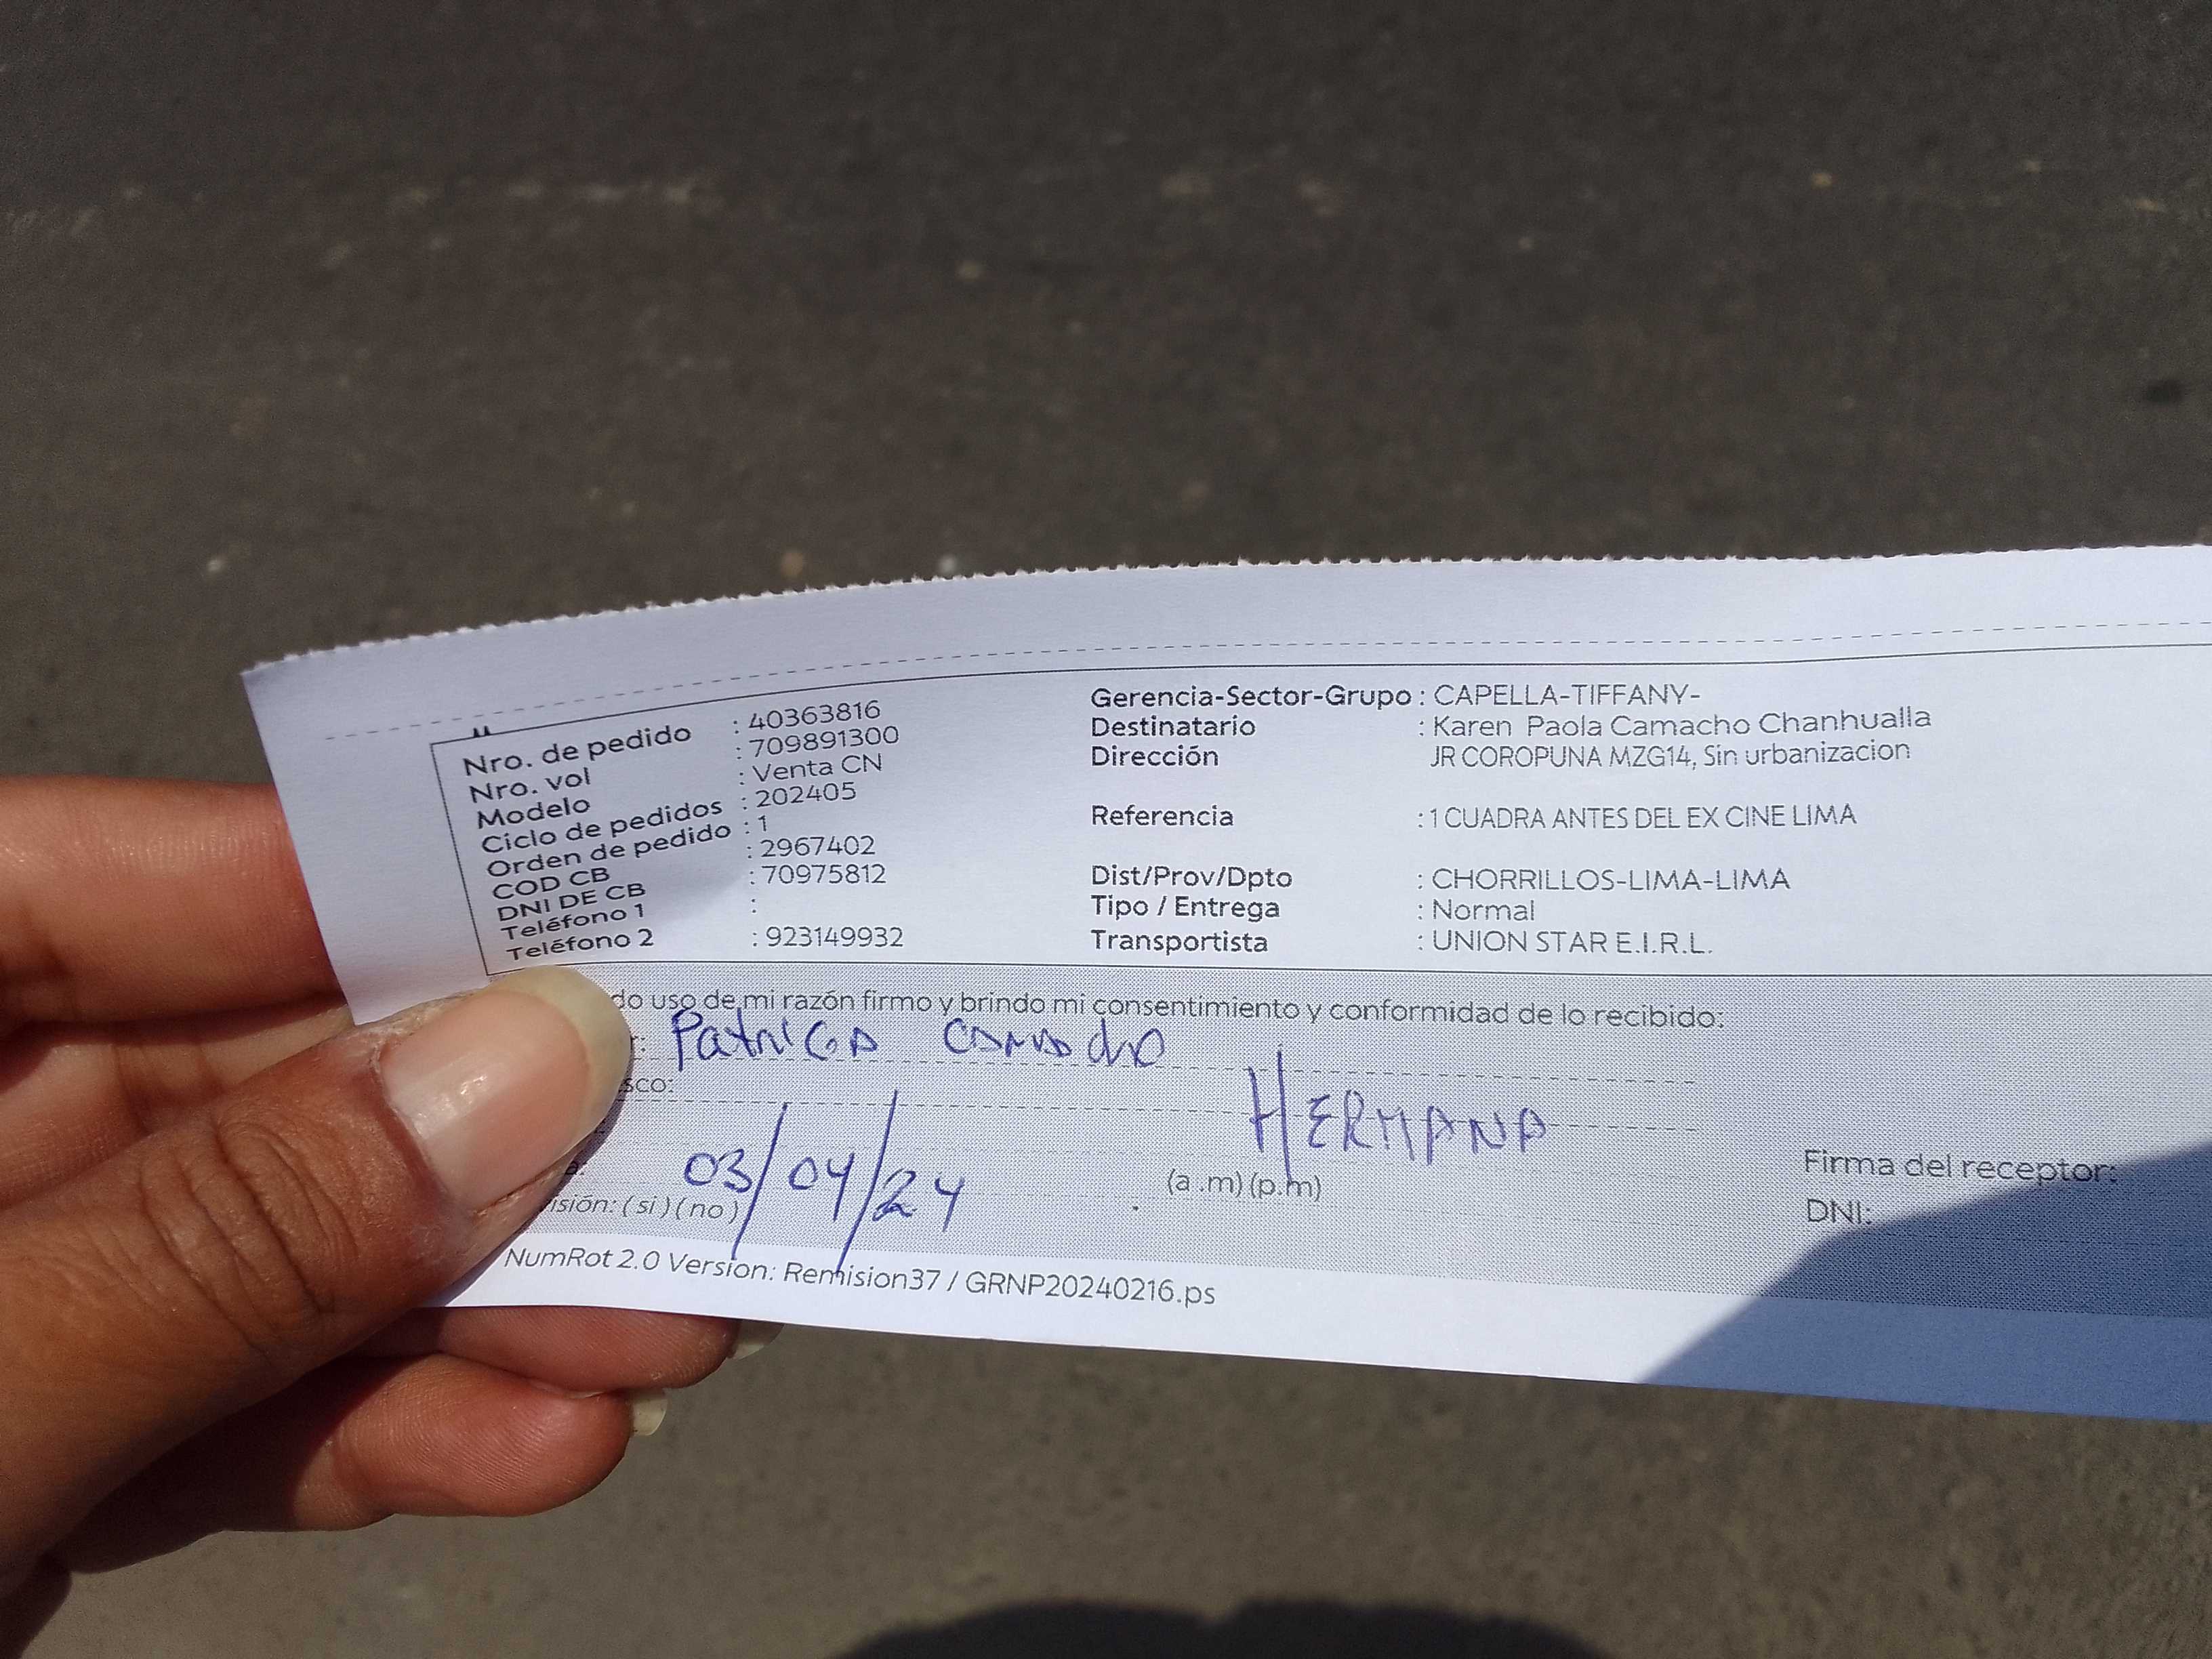 Nro. de pedido : 40363816
Nro. vol : 709891300
Modelo : Venta CN
Ciclo de pedidos : 202405
Orden de pedido : 1
COD CB : 2967402
DNI DE CB : 70975812
Teléfono 1 :
Teléfono 2 : 923149932
Gerencia-Sector-Grupo : CAPELLA-TIFFANY-
Destinatario : Karen Paola Camacho Chanhualla
Dirección JR COROPUNA MZG14, Sin urbanizacion
Referencia : 1 CUADRA ANTES DEL EX CINE LIMA
Dist/Prov/Dpto : CHORRILLOS-LIMA-LIMA
Tipo / Entrega : Normal
Transportista : UNION STAR E.I.R.L.
do uso de mi razón firmo y brindo mi consentimiento y conformidad de lo recibido:
r: Patricia
sco: HERMANA
a: 03/04/24 (a .m) (p.m)
isión: ( si ) ( no )
Firma del receptor:
DNI:
NumRot 2.0 Version: Remision37 / GRNP20240216.ps